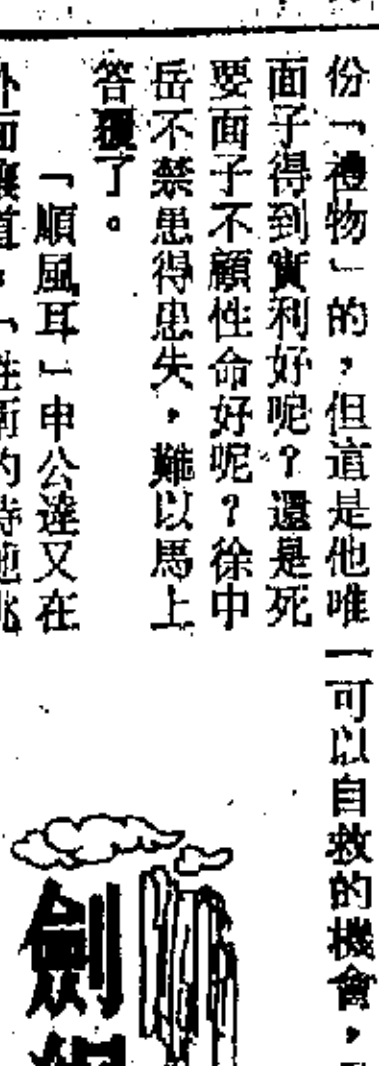 份「禮物」的，但這是他唯一可以自救的機會，
面子得到實利好呢？還是死
要面子不顧性命好呢？徐中
岳不禁患得患失，難以馬上
答覆了。
「順風耳」申公達又在
外面嚷道，「
劍